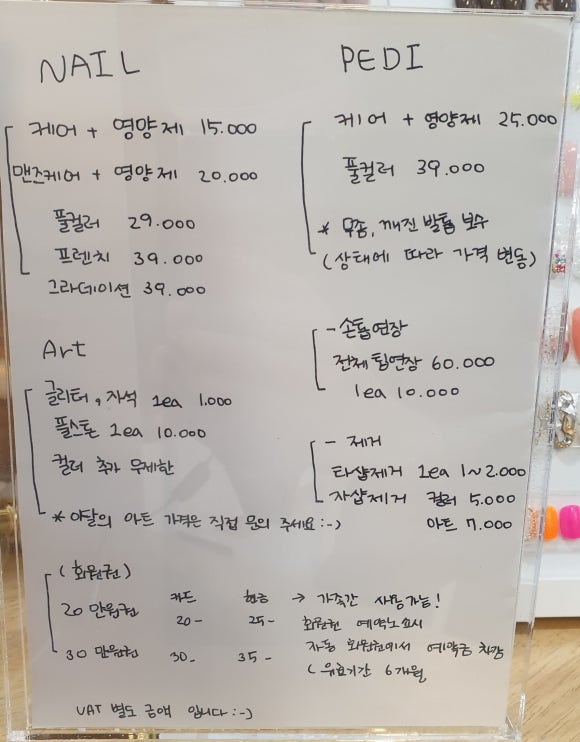 NAIL
케어 + 영양제 15.000
맨즈케어 + 영양제 20.000
풀컬러 29.000
프렌치 39.000
그라데이션 39.000
Art
글리터, 자석 1ea 1.000
풀스톤 1ea 10.000
컬러 추가 무제한
* 이달의 아트 가격은 직접 문의 주세요 :-)
PEDI
케어 + 영양제 25.000
풀컬러 39.000
* 무좀, 깨진 발톱 보수
(상태에 따라 가격 변동)
- 손톱연장
전체 팁연장 60.000
1ea 10.000
- 제거
타샵제거 1ea 1~2.000
자샵제거 컬러 5.000
아트 7.000
(회원권)
카드 현금 → 가족간 사용가능!
20만원권 20- 25- 회원권 예약노쇼시
자동 회원권에서 예약금 차감
30만원권 30- 35- (유효기간 6개월
VAT 별도 금액 입니다 :-)